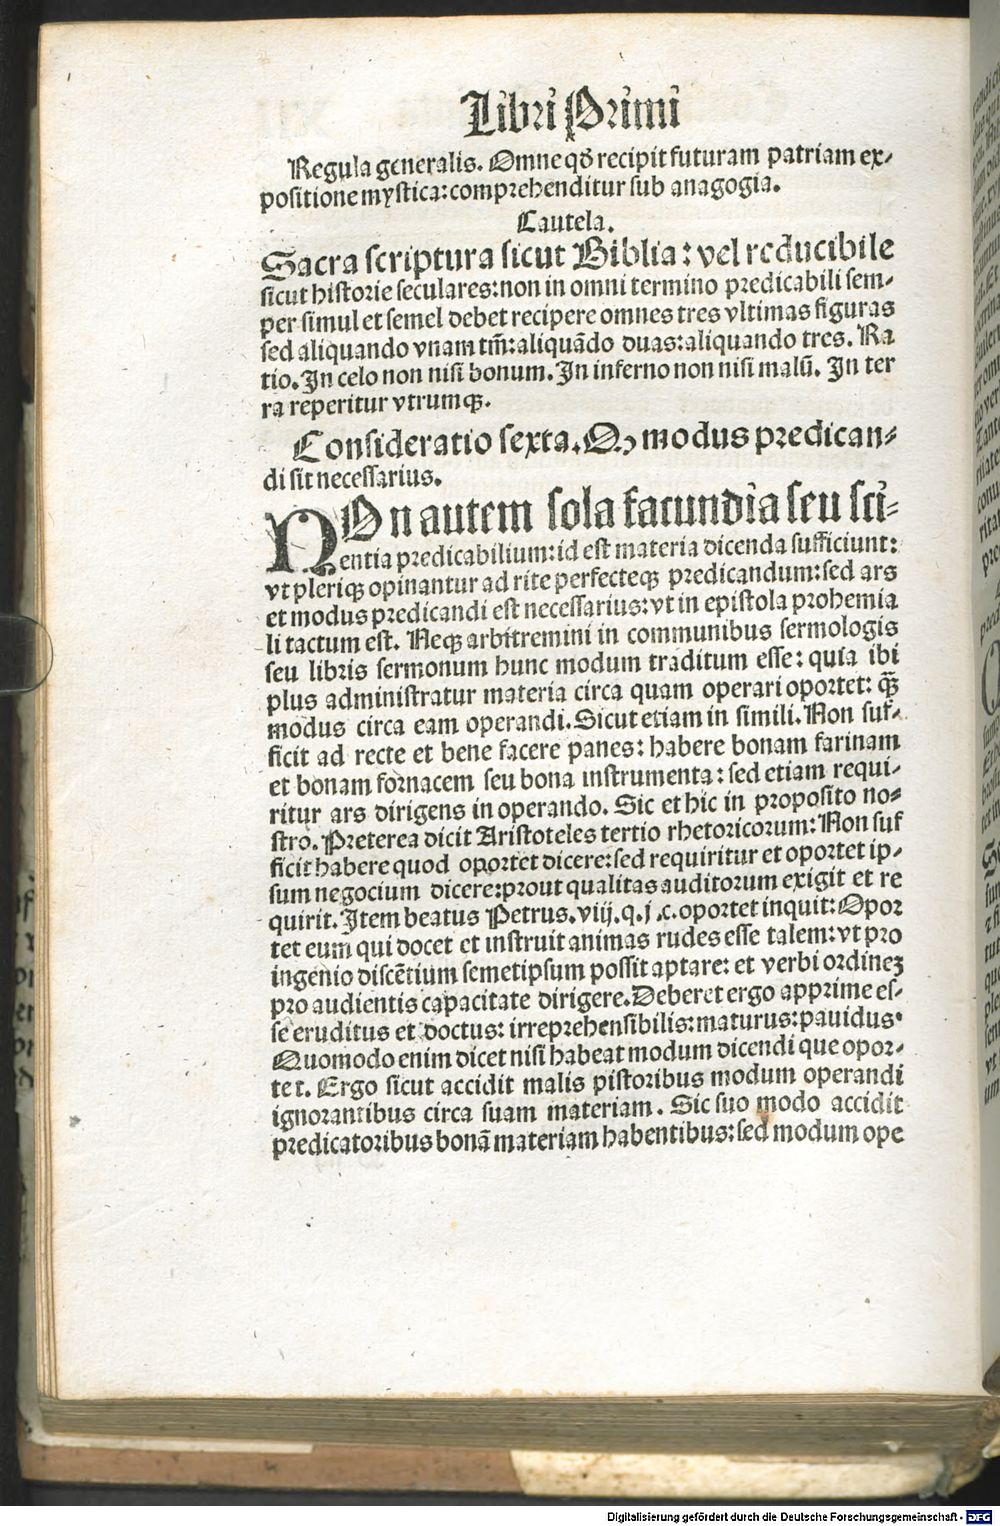 Libri Primi
Regula generalis. Omne qđ recipit futuram patriam ex-
positione mystica: comprehenditur sub anagogia.
Cautela.
Sacra scriptura sicut Biblia: vel reducibile
sicut historie seculares: non in omni termino predicabili sem-
per simul et semel debet recipere omnes tres vltimas figuras
sed aliquando vnam tm̄: aliquādo duas: aliquando tres. Ra
tio. In celo non nisi bonum. In inferno non nisi malū. In ter
ra reperitur vtrumqꝫ.
Consideratio sexta. Qꝫ modus predican-
di sit necessarius.
NOn autem sola facundia seu sci-
entia predicabilium: id est materia dicenda sufficiunt:
vt pleriqꝫ opinantur ad rite perfecteqꝫ predicandum: sed ars
et modus predicandi est necessarius: vt in epistola prohemia
li tactum est. Neqꝫ arbitremini in communibus sermologis
seu libris sermonum hunc modum traditum esse: quia ibi
plus administratur materia circa quam operari oportet: qꝫ̄
modus circa eam operandi. Sicut etiam in simili. Non suf-
ficit ad recte et bene facere panes: habere bonam farinam
et bonam fornacem seu bona instrumenta: sed etiam requi-
ritur ars dirigens in operando. Sic et hic in proposito no-
stro. Preterea dicit Aristoteles tertio rhetoricorum: Non suf
ficit habere quod oportet dicere: sed requiritur et oportet ip-
sum negocium dicere: prout qualitas auditorum exigit et re
quirit. Item beatus Petrus. viij. q. j. c. oportet inquit: Opor
tet eum qui docet et instruit animas rudes esse talem: vt pro
ingenio discētium semetipsum possit aptare: et verbi ordineꝫ
pro audientis capacitate dirigere. Deberet ergo apprime es-
se eruditus et doctus: irreprehensibilis: maturus: pauidus.
Quomodo enim dicet nisi habeat modum dicendi que opor-
tet. Ergo sicut accidit malis pistoribus modum operandi
ignorantibus circa suam materiam. Sic suo modo accidit
predicatoribus bonā materiam habentibus: sed modum ope
Digitalisierung gefördert durch die Deutsche Forschungsgemeinschaft - DFG